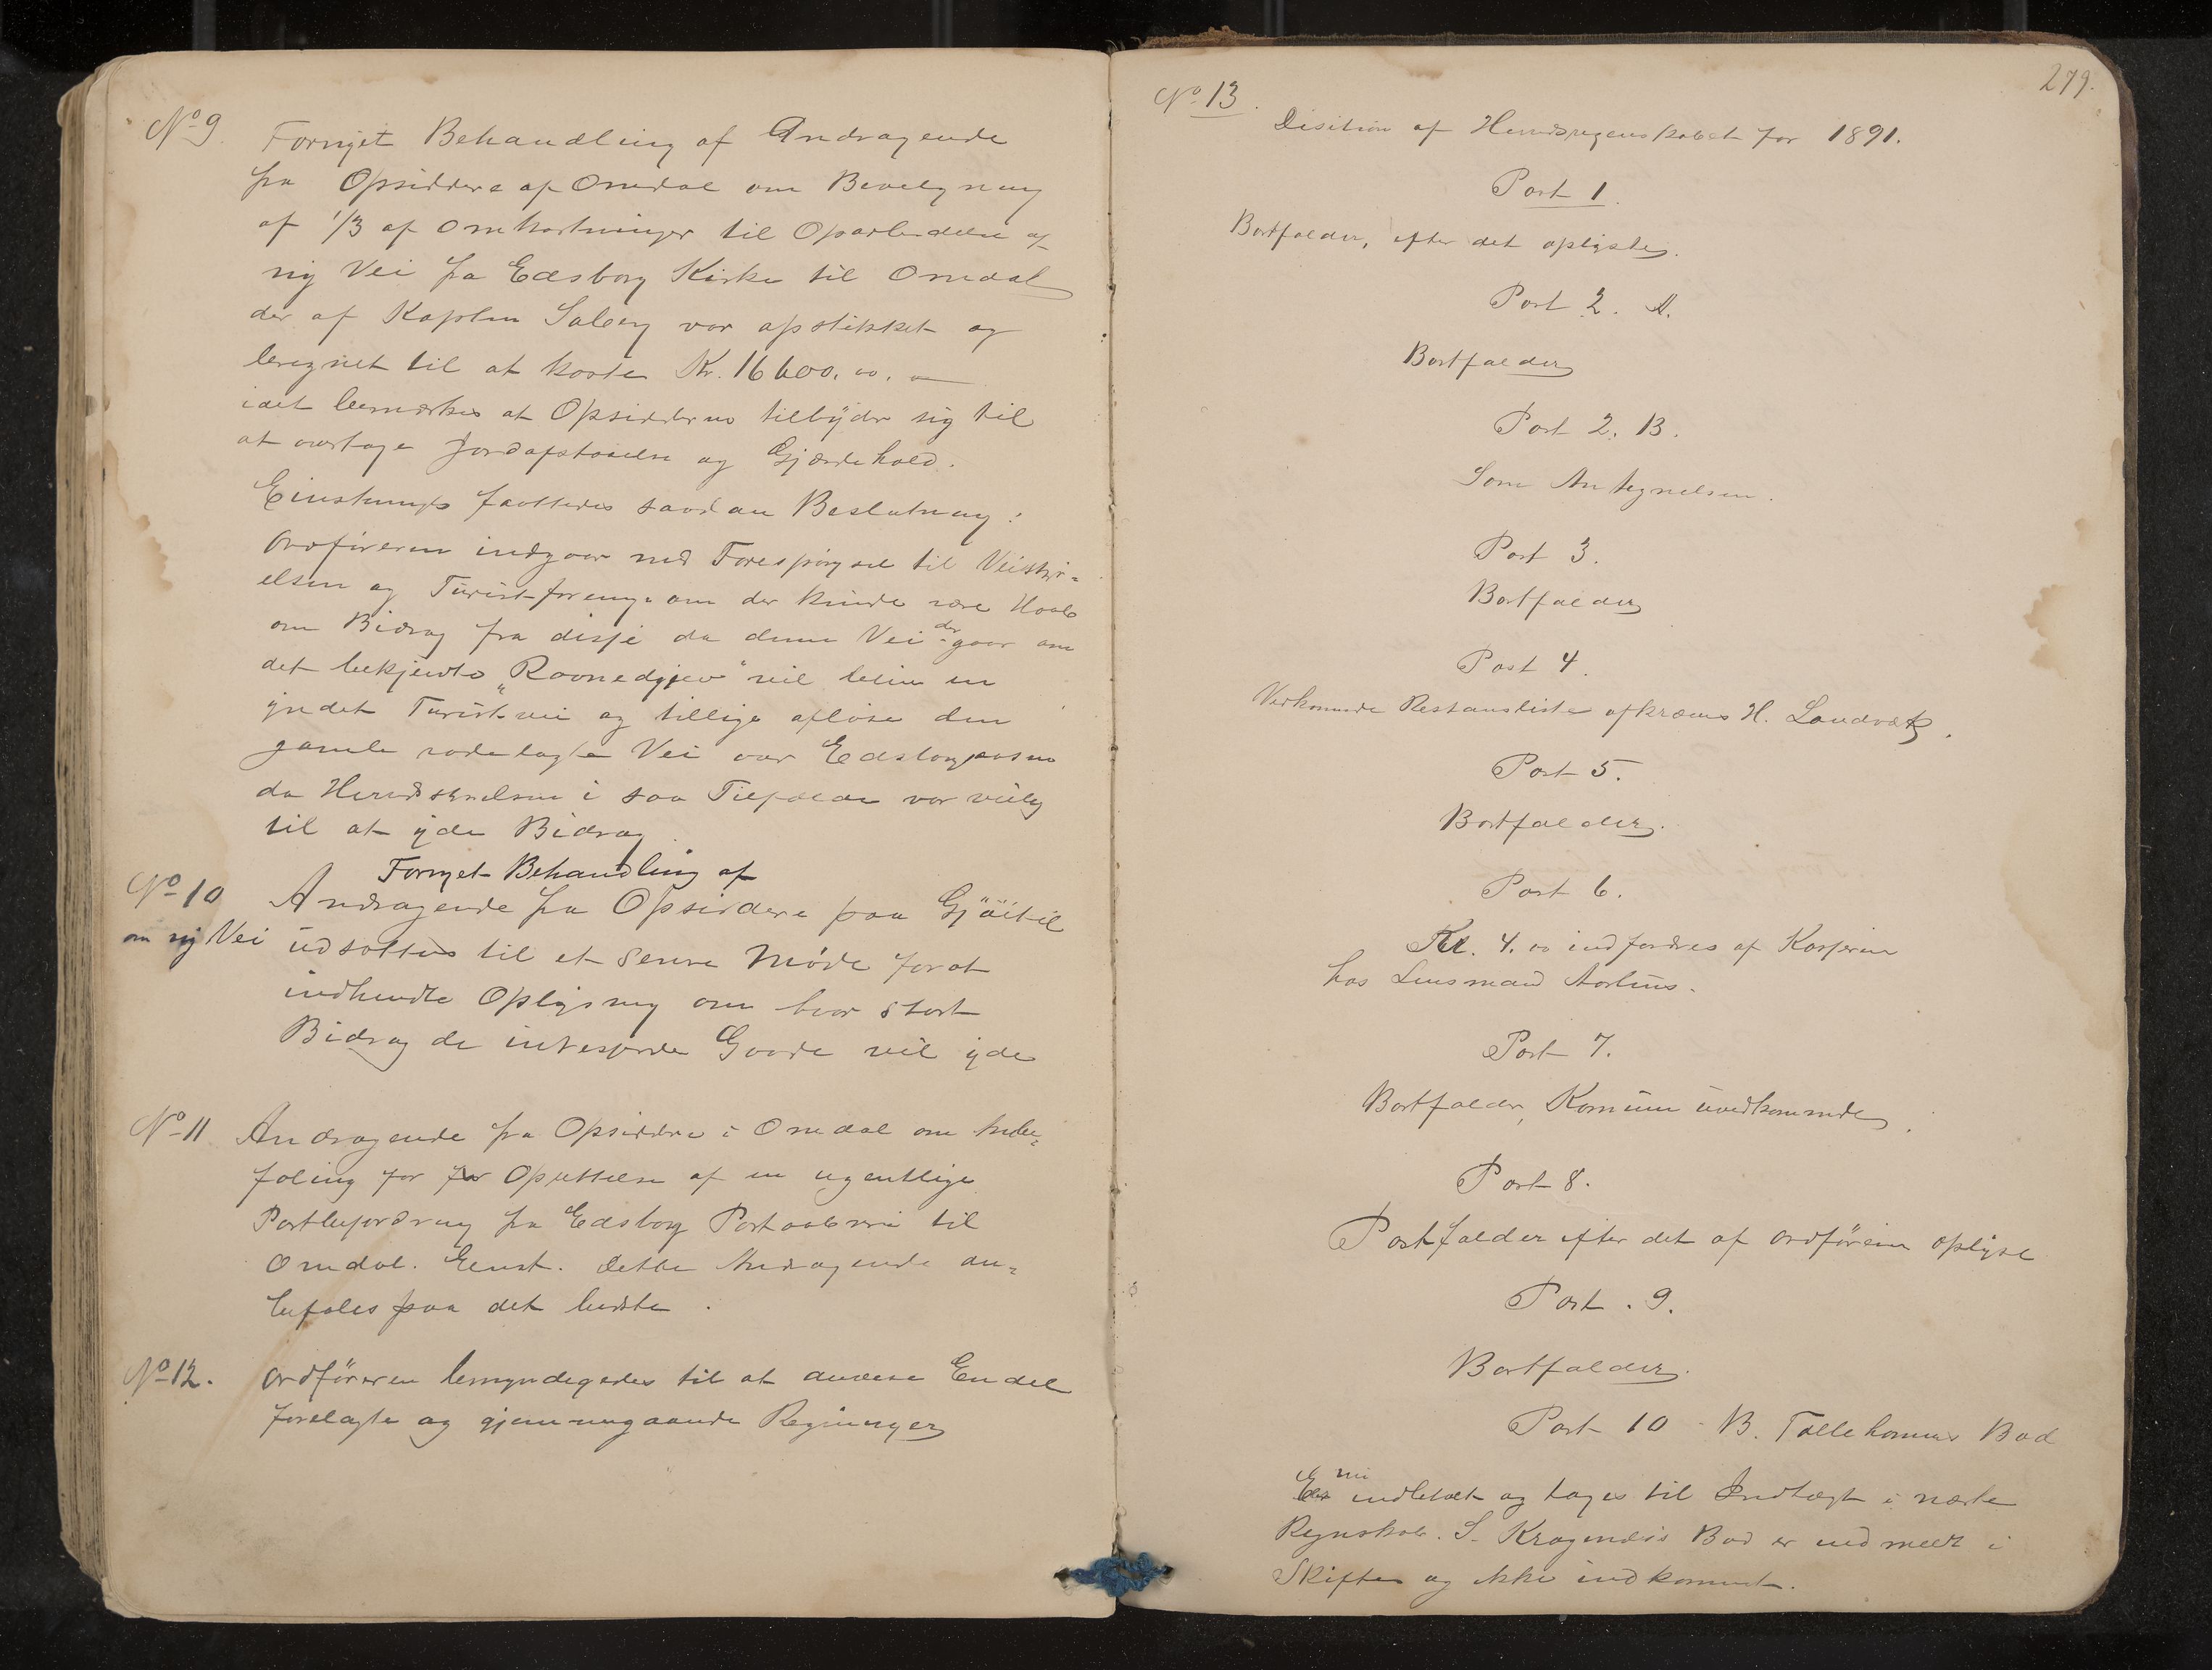 No 9. Fornyet Behandling af Andragende
fra Opsiddere af Omdal om Bevilgning
af 1/3 af Omkostninger til Oparbeidelse af
ny Vei fra Eidsborg Kirke til Omdal
der af Kaptein Solberg var opstikket og
beregnet til at koste Kr. 16600.00. —
idet bemærkes at Opsidderne tilbyder sig til
at overtage Jordafstaaelse og Gjærdehold.
Einstemmigt fattedes saadan Beslutning:
Ordføreren indgaar med Forespørgsel til Veistyr=
elsen og Turistforening om der kunde være Haab
om Bidrag fra disse da denne Vei der gaar om
det bekjendte "Ravnedjuv" vil blive en
yndet Turistvei og tillige afløse den
gamle rodelagte Vei over Eidsborgaasen
da Herredsstyrelsen i saa Tilfælde var villig
til at yde Bidrag
Fornyet Behandling af
No 10 Andragende fra Opsiddere paa Gjøitil
om ny Vei udsattes til et senere Møde for at
indhendte Oplysning om hvor stort
Bidrag de interesserede Gaarde vil yde
No 11 Andragende fra Opsiddere i Omdal om Anbe=
faling for for Oprettelse af en ugentlige
Postbefordring fra Eidsborg Postaabneri til
Omdal. Eenst. Dette Andragende an=
befales paa det bedste.
No 12. Ordføreren bemyndigedes til at anvise Endel
forelagte og gjennemgaaende Regninger
279.
No 13.
Disition af Herredsregenskabet for 1891.
Post 1.
Bortfalder, efter det oplyste.
Post 2. A.
Bortfalder
Post 2. B.
Som Antegnelsen.
Post 3.
Bortfalder
Post 4.
Vedkommende Restanseliste afkræves H. Landvæk.
Post 5.
Bortfalder.
Post 6.
Kr. 4.00 indfordres af Kasseren
hos Lensmand Aarlius.
Post 7.
Bortfalder, Komunen uvedkommende.
Post 8.
Postfalder efter det af Ordføreren oplyse
Post. 9.
Bortfalder.
Post 10 - B. Tallekomms Bod
Er nu indbetalt og tages til Indtægt i næste
Regnskab. S. Kragenæs's Bod er indmeldt i
Skiftet og ikke indkommet.